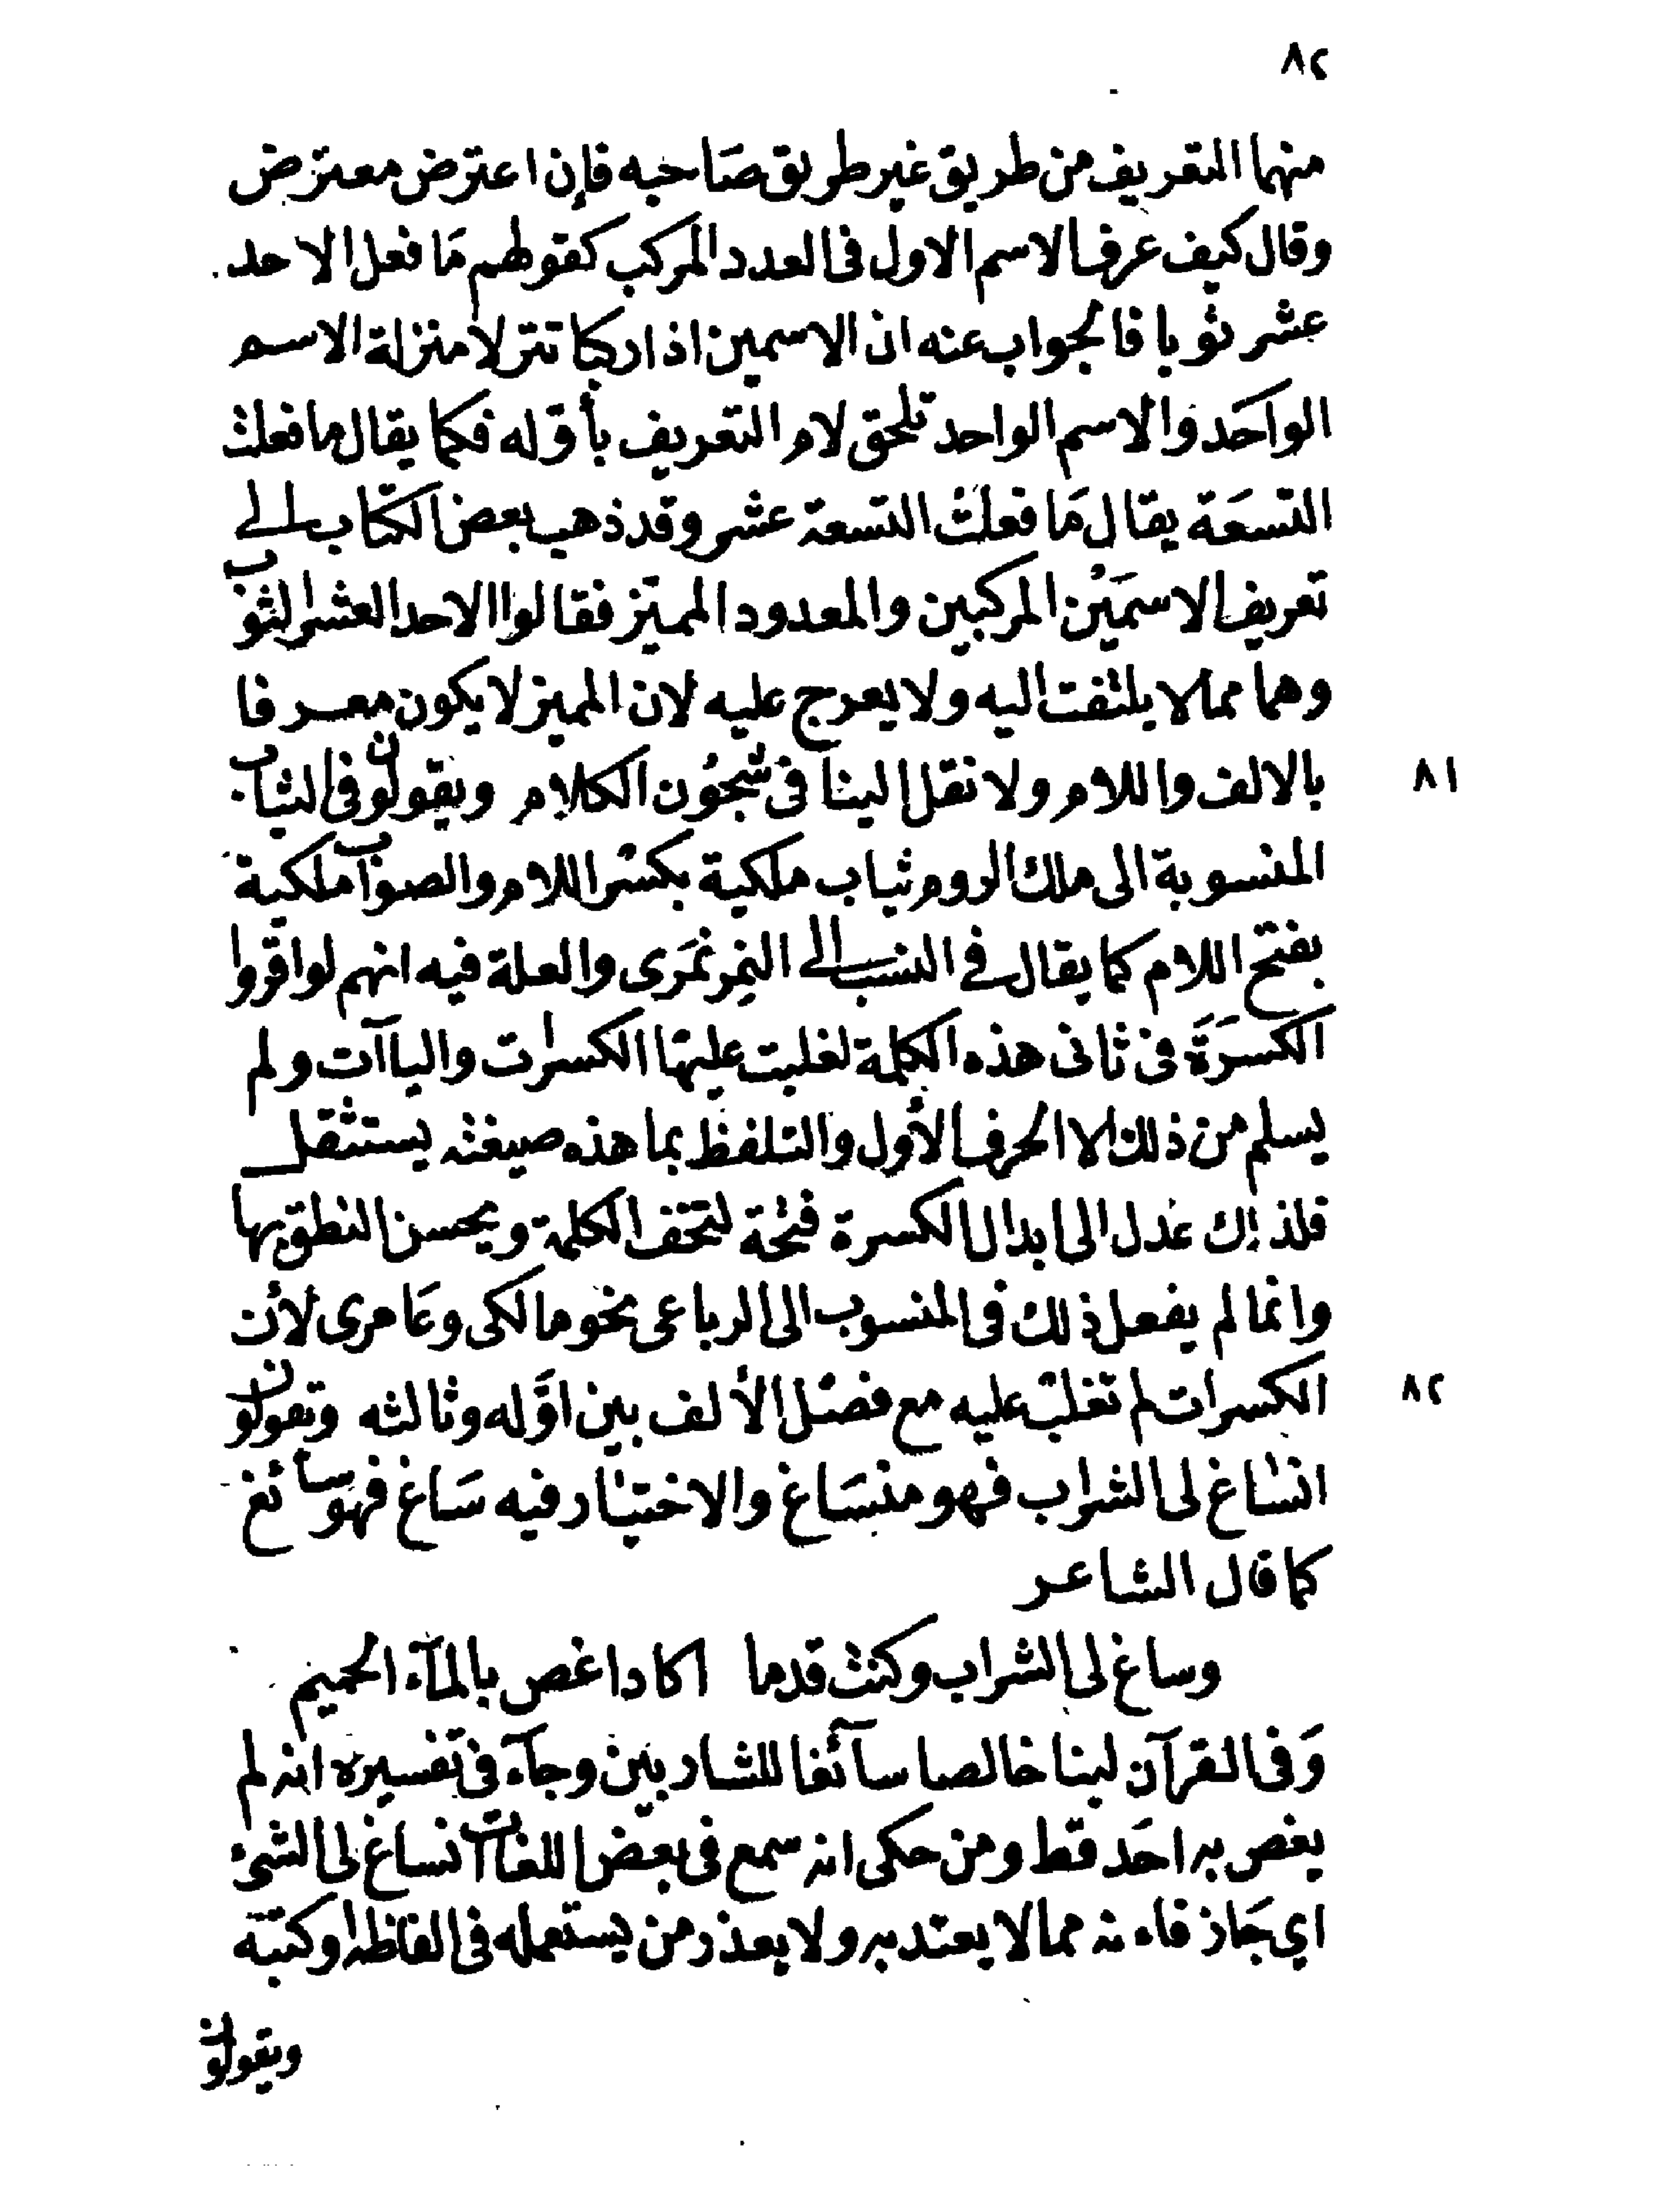 ٨٢
منهما التعريف من طريق غير طريق صَاحبه فإن اعترض معترض
وقال كيف عرف الاسم الاول فى العدد المركب كقولهم مَا فعل الاحد
عشر ثوبا فالجواب عنه ان الاسمين اذا ركبا تنزلا منزلة الاسم
الواحَد والاسم الواحد تلحق لام التعريف بأوّله فكما يقال ما فعلت
التسعَة يقال مَا فعلت التسعة عشر وقد ذهب بعض الكتّاب الى
تعريف الاسمَيْن المركبين والمعدود المميّز فقالوا الاحد العشر الثوب
وهما مما لا يلتفت اليه ولا يعرج عليه لان المميز لا يكون معرفا
٨١ بالالف واللام ولا نقل الينا فى شجُون الكلام ويقولون فى الثياب
المنسوبة الى ملك الروم ثياب ملكية بكسْر اللام والصواب ملكية
بفتح اللام كما يقال فى النسب الى النمِر نمَرى والعلة فيه انهم لو اقرّوا
الكسرَةَ فى ثانى هذه الكلمة لغلبت عليهَا الكسرات والياآت ولم
يسلم من ذلك الا الحرف الأول والتلفظ بما هذه صيغته يستثقل
فلذلك عَدل الى ابدال الكسرة فتحة لتخف الكلمة ويحسن النطق بها
وانما لم يفعل ذلك فى المنسوب الى الرباعى نحو مالكى وعَامرى لأن
٨٢ الكسرات لم تغلب عليه مع فصْل الألف بين اوّله وثالثه ويقولون
انسَاغ لى الشراب فهو منسَاغ والاختيَار فيه سَاغ فهو سائغ
كما قال الشاعر
وساغ لى الشراب وكنت قدما اكاد اغص بالمآء الحميم
وَفى القرآن لبنا خالصا سآئغا للشاربين وجآء فى تفسيره انه لم
يغص به احَد قط ومن حكى انه سمع فى بعض اللغات انساغ لى الشئ
اي جَاز فاءنه مما لا يعتد به ولا يعذر من يستعمله فى الفاظه او كتبه
ويقولون